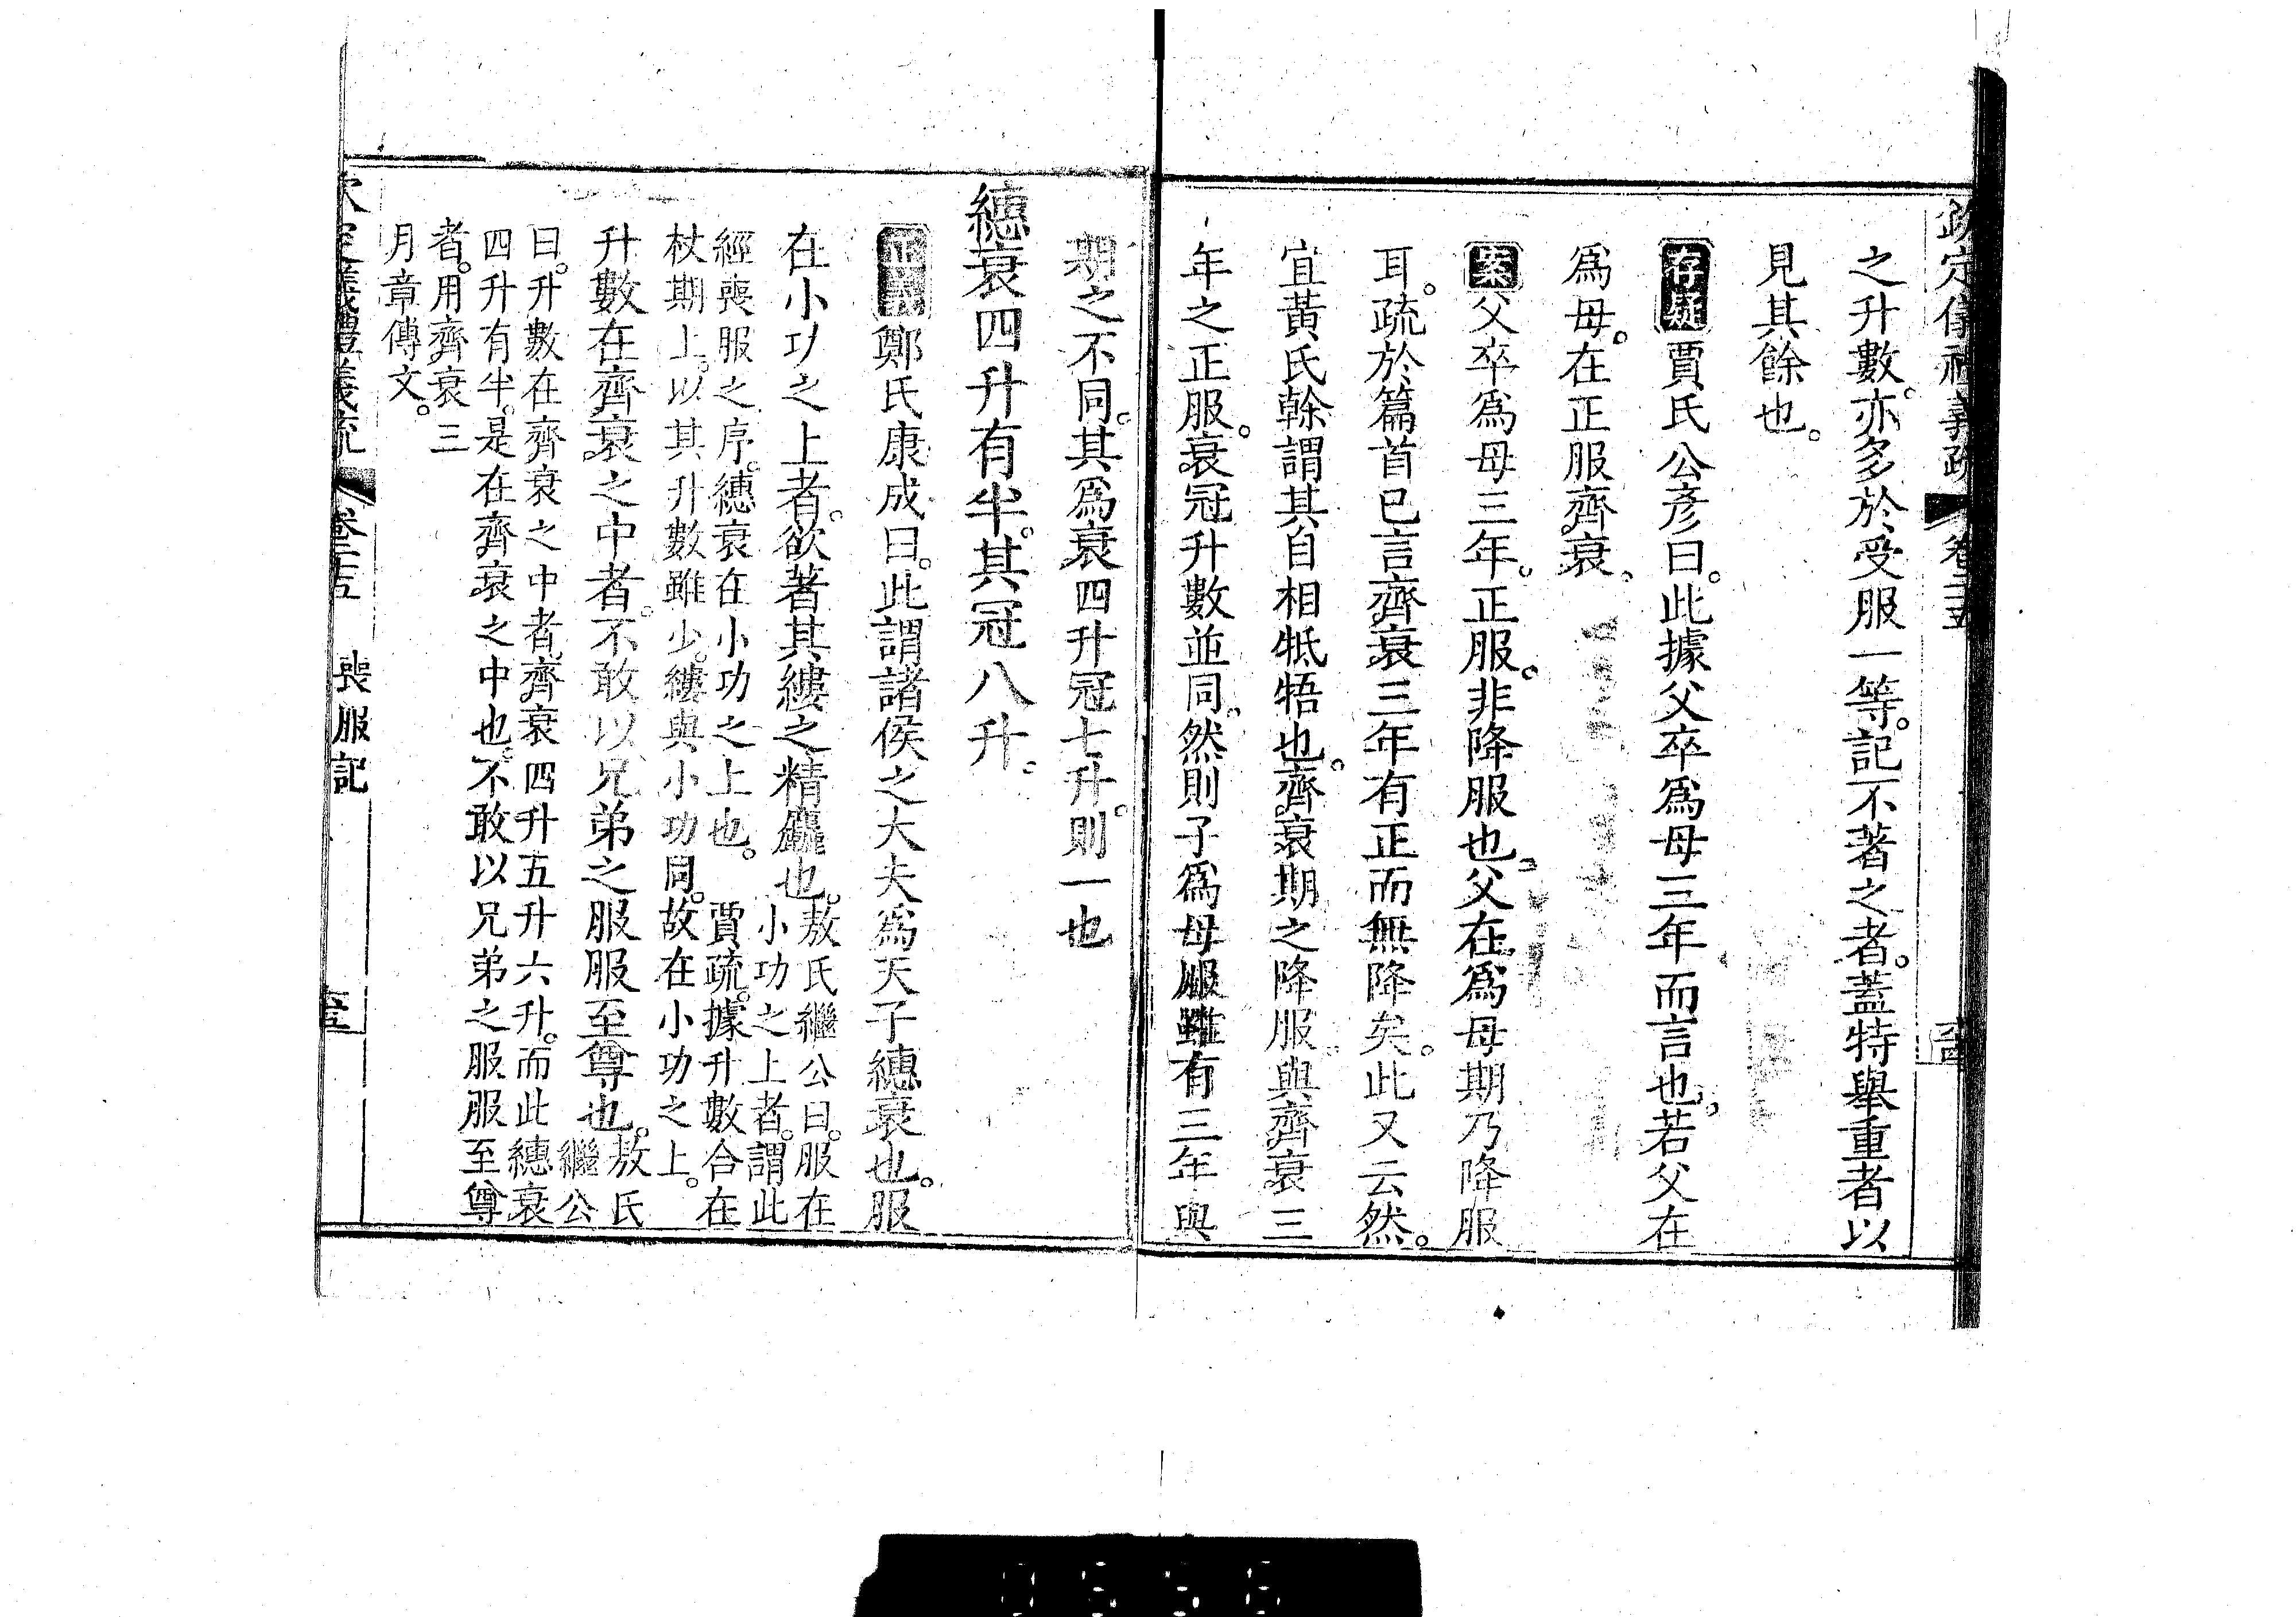 欽定儀禮義疏 卷二十五
之升數。亦多於受服一等。記不著之者。蓋特舉重者以
見其餘也。
存疑賈氏公彥曰。此據父卒爲母三年而言也。若父在
爲母。在正服齊衰。
案父卒爲母三年。正服。非降服也。父在爲母期乃降服
耳。疏於篇首已言齊衰三年有正而無降矣。此又云然。
宜黃氏榦謂其自相牴牾也。齊衰期之降服。與齊衰三
年之正服。衰冠升數並同。然則子爲母服雖有三年與
期之不同。其爲衰四升冠七升。則一也
繐衰四升有半。其冠八升。
正義鄭氏康成曰。此謂諸侯之大夫爲天子繐衰也。服
在小功之上者。欲著其縷之精麤也。敖氏繼公曰。服在
小功之上者。謂此
經喪服之序。繐衰在小功之上也。 賈疏。據升數合在
杖期上。以其升數雖少。縷與小功同。故在小功之上。
升數在齊衰之中者。不敢以兄弟之服服至尊也。敖氏
繼公
曰。升數在齊衰之中者。齊衰四升五升六升。而此繐衰
四升有半。是在齊衰之中也。不敢以兄弟之服服至尊
者。用齊衰三
月章傳文。
欽定儀禮義疏 卷二十五 喪服記